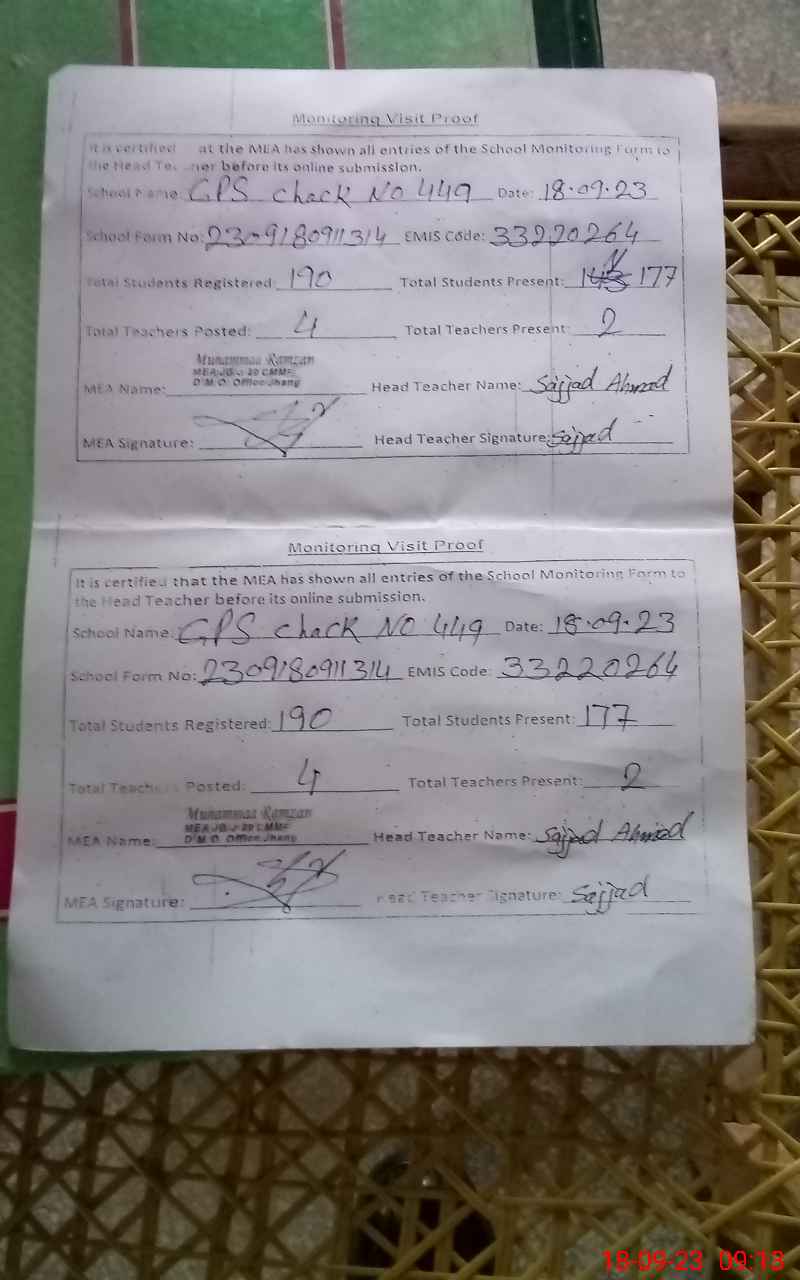 Monitoring Visit Proof
It is certified at the MEA has shown all entries of the School Monitoring Form to
the Head Teacher before its online submission.
School Name: GPS chack NO 449 Date: 18.09.23
School Form No: 230918091314 EMIS Code: 33220264
Total Students Registered: 190 Total Students Present: 177
Total Teachers Posted: 4 Total Teachers Present: 2
Muhammad Ramzan
D.M.O. Office Jhang
MEA Name: Head Teacher Name: Sajjad Ahmad
MEA Signature: Head Teacher Signature: Sajjad
Monitoring Visit Proof
It is certified that the MEA has shown all entries of the School Monitoring Form to
the Head Teacher before its online submission.
School Name: GPS chack NO 449 Date: 18.09.23
School Form No: 230918091314 EMIS Code: 33220264
Total Students Registered: 190 Total Students Present: 177
Total Teachers Posted: 4 Total Teachers Present: 2
Muhammad Ramzan
D.M.O. Office Jhang
MEA Name: Head Teacher Name: Sajjad Ahmad
MEA Signature: Head Teacher Signature: Sajjad
18-09-23 09:13